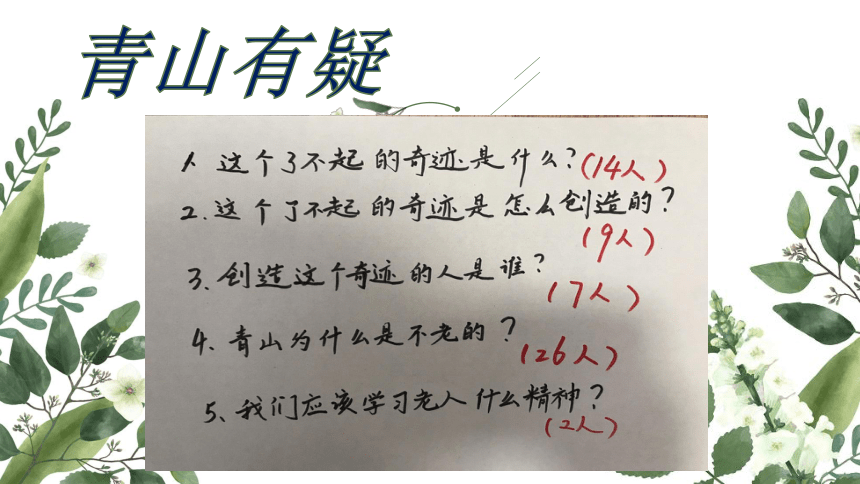 青山有疑
1、这个了不起的奇迹是什么？(14人)
2.这个了不起的奇迹是怎么创造的？
(9人)
3、创造这个奇迹的人是谁？
(7人)
4、青山为什么是不老的？
(26人)
5、我们应该学习老人什么精神？
(2人)